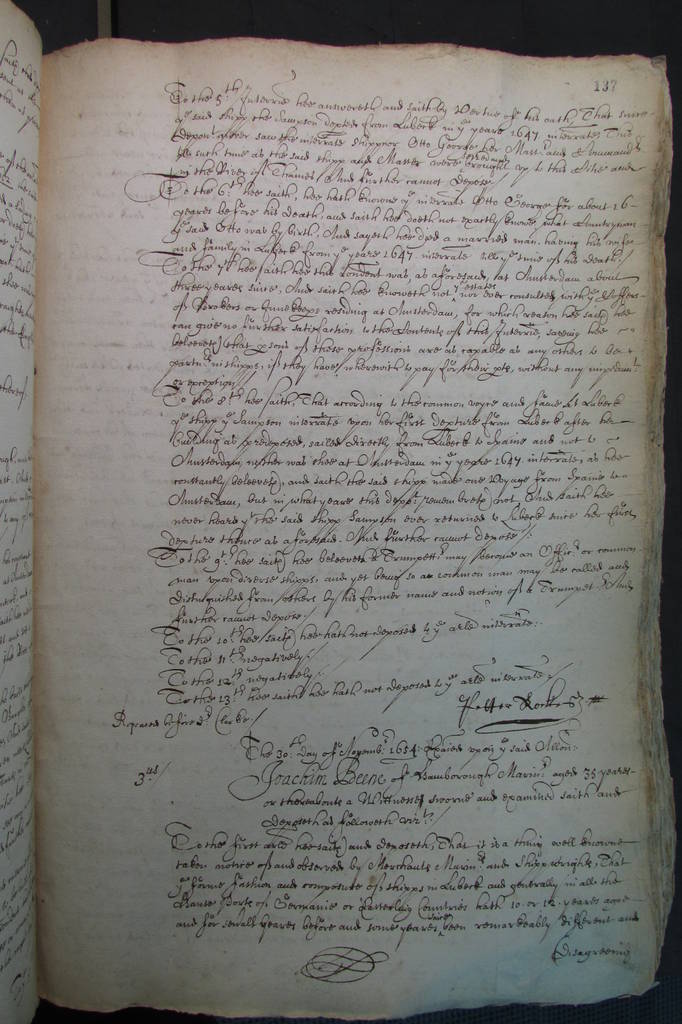 137
To the 5th Interrie hee answereth and saith by Vertue of his oath, That since
ye said shipp the Sampson depted from Lubeck in ye yeare 1647 interrate this
depont never saw the interrate shipper Otto George her Mastr and Commandr
till such time as the said shipp and Master were brought up to this Citie and
in the River of Thames, And further cannot depose
To the 6th hee saith, hee hath knowne ye interrate Otto George for about 16
yeares before his death, and saith hee doeth not exactly knowe what Countryman
ye said Otto was by birth, And sayeth hee dyed a married man, having his wife
and family in Lubeck from ye yeare 1647 interrate till ye time of his death/
To the 7th hee saith hee this rondent was, as aforesaid, at Amsterdam about
three yeares since, And saith hee knoweth not ye estates nor ever consulted with ye
of Brokers or Innekeeps residing at Amsterdam, for which reason hee saith hee
can give no further satisfaction to the Contents of this Interrie, saving hee
beleeveth that psons of those professions are as capable as any others to bee
partnrs in shipps, if they have wherewith to pay for their pts, without any
or exception/
To the 8th hee saith, That according to the common voyce and fame at Lubeck
ye shipp ye Sampson interrate upon her first depture from Lubeck after her
building as predeposed, sailed directly from Lubeck to Spaine and not to
Amsterdam, neither was shee at Amsterdam in ye yeare 1647 interrate, as hee
constantly beleeveth, and saith the said shipp made one Voyage from Spaine to
Amsterdam, but in what yeare this depot remembreth not, And saith hee
never heard yt the said shipp Sampson ever returned to Lubeck since her first
depture thence as aforesaid. And further cannot depose/
To the 9th hee saith hee beleeveth a Trumpettr may become an Officr or common
man upon diverse shipps, and yet being so a common man may be called and
distinguished from others by his former name and notion of a Trumpetr And
further cannot depose/
To the 10th hee saith hee hath not deposed to ye arle interrate:
To the 11th negatively/
To the 12th negatively/
To the 13th hee saith hee hath not deposed to ye arle interrate/
Repeated before Dr Clerke/
The 30th day of Novembr 1654: Exaied upon ye said Allon:
3us/
Joachim Beene of Hamborough Marinr aged 35 yeares
or thereabouts a Wittnes sworne and examined saith and
deposeth as followeth vizt/
To the first arle hee saith and deposeth, That it is a thing well knowne
taken notice of and observed by Merchants Marinrs and Shippwrights, That
ye forme fashion and composure of shipps in Lubeck and generally in all the
Hanse Ports of Germanie or Easterling Countries hath 10 or 12 yeares agoe
and for severall yeares before and some yeares since been remarkeably different and
disagreeing